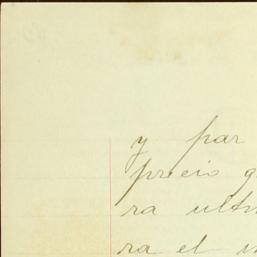 y par
precio g
ra ultr
ra el